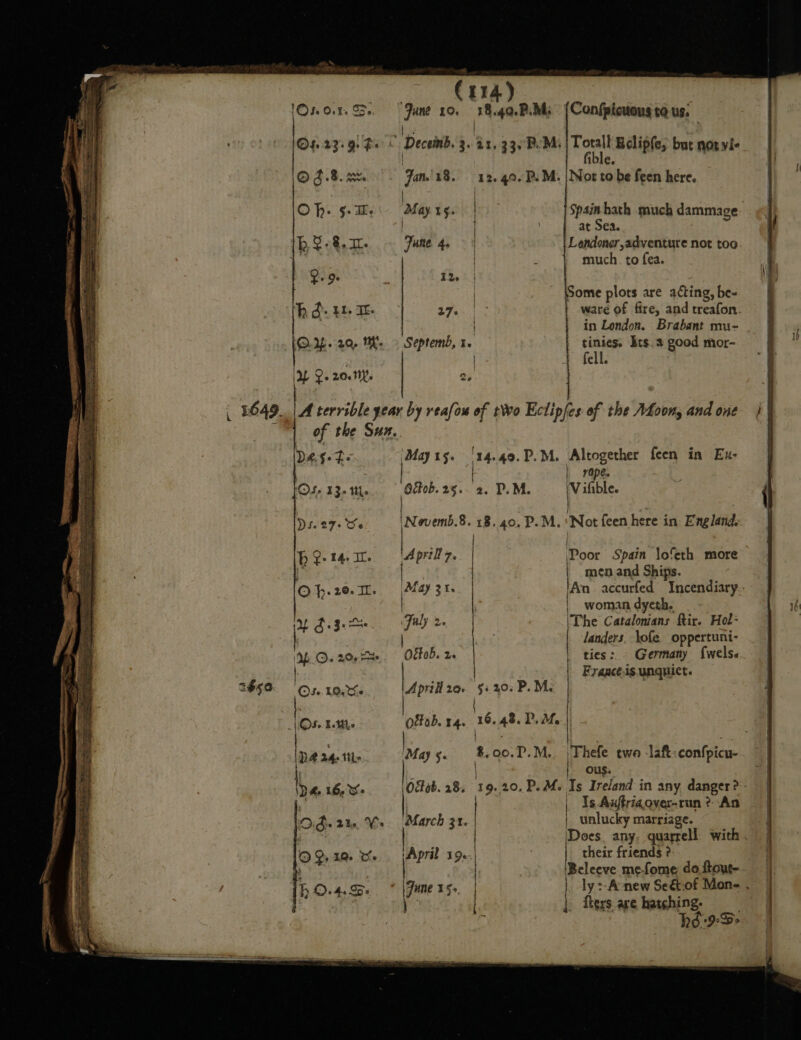 (114)
June 10. 18.40.P.M. Conſpicuous to us.
Decemb. 3. 21. 33. P.M. Totall Eclipſe, but not vi-
ſible.
Jan. 18. 12.40. P.M. Not to be ſeen here.
☉ ♄. 5. ♊. May 15. Spain hath much dammage
at Sea.
♄ ☿. 8. ♊. June 4. Londoner, adventure not too
much to ſea.
♀. 9. 12.
Some plots are acting, be-
♄ ♂. 11. ♊. 27. ware of fire, and treaſon.
in London. Brabant mu-
☉ ♃. 20. ♍. Septemb. 1. tinies. Ets. a good mor-
ſell.
♃ ♀. 20. ♍. 2.
1649. A terrible year by reaſon of two Eclipſes of the Moon, and one
of the Sun.
May 15. 14.40. P.M. Altogether ſeen in Eu-
rope.
Octob. 25. 2. P.M. Viſible.
Novemb. 8. 18. 40. P.M. Not ſeen here in England.
♄ ♀. 14. ♊. Aprill 7. Poor Spain loſeth more
men and Ships.
☉ ♄. 20. ♊. May 31. An accurſed Incendiary
woman dyeth.
♃ ♂. 3. ♎. July 2. The Catalonians ſtir. Hol-
landers loſe oppertuni-
♃ ☉. 20. ♎. Octob. 2. ties: Germany ſwels.
France is unquiet.
1650 Aprill 20. 5. 20. P.M.
Octob. 14. 16.48. P.M.
May 5. 8. 00. P.M. Theſe two laſt conſpicu-
ous.
Octob. 28. 19. 20. P.M. Is Ireland in any danger?
Is Auſtria over-run? An
March 31. unlucky marriage.
Does any quarrell with
April 19. their friends?
Beleeve me ſome do ſtout-
♄ ☉. 4. ♋. June 15. ly: A new Sect of Mon-
ſters are hatching.
♄ ♂. 9. ♋.